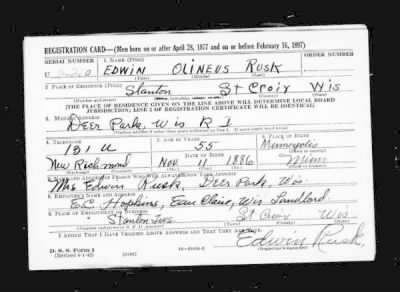 REGISTRATION CARD—(Men born on or after April 28, 1877 and on or before February 16, 1897)
SERIAL NUMBER 1. NAME (Print) ORDER NUMBER
U EDWIN OLINEUS RUSK
(First) (Middle) (Last)
2. PLACE OF RESIDENCE (Print)
Stanton St Croix Wis
(Number and street) (Town, township, village, or city) (County) (State)
[THE PLACE OF RESIDENCE GIVEN ON THE LINE ABOVE WILL DETERMINE LOCAL BOARD
JURISDICTION; LINE 2 OF REGISTRATION CERTIFICATE WILL BE IDENTICAL]
3. MAILING ADDRESS
Deer Park, Wis R 1
4. TELEPHONE 5. AGE IN YEARS 6. PLACE OF BIRTH
131 U 55 Minneapolis
DATE OF BIRTH (Town or county)
New Richmond Nov. 11 1886 Minn
(Exchange) (Number) (Mo.) (Day) (Yr.) (State or country)
7. NAME AND ADDRESS OF PERSON WHO WILL ALWAYS KNOW YOUR ADDRESS
Mrs Edwin Rusk, Deer Park, Wis
8. EMPLOYER'S NAME AND ADDRESS
E.C. Hopkins, Eau Claire, Wis. Landlord.
9. PLACE OF EMPLOYMENT OR BUSINESS
Stanton Twp. St Croix Wis
(Number and street or R. F. D. number) (Town) (County) (State)
I AFFIRM THAT I HAVE VERIFIED ABOVE ANSWERS AND THAT THEY ARE TRUE.
D. S. S. Form 1
(Revised 4-1-42) (over)
Edwin Rusk
(Registrant's signature)